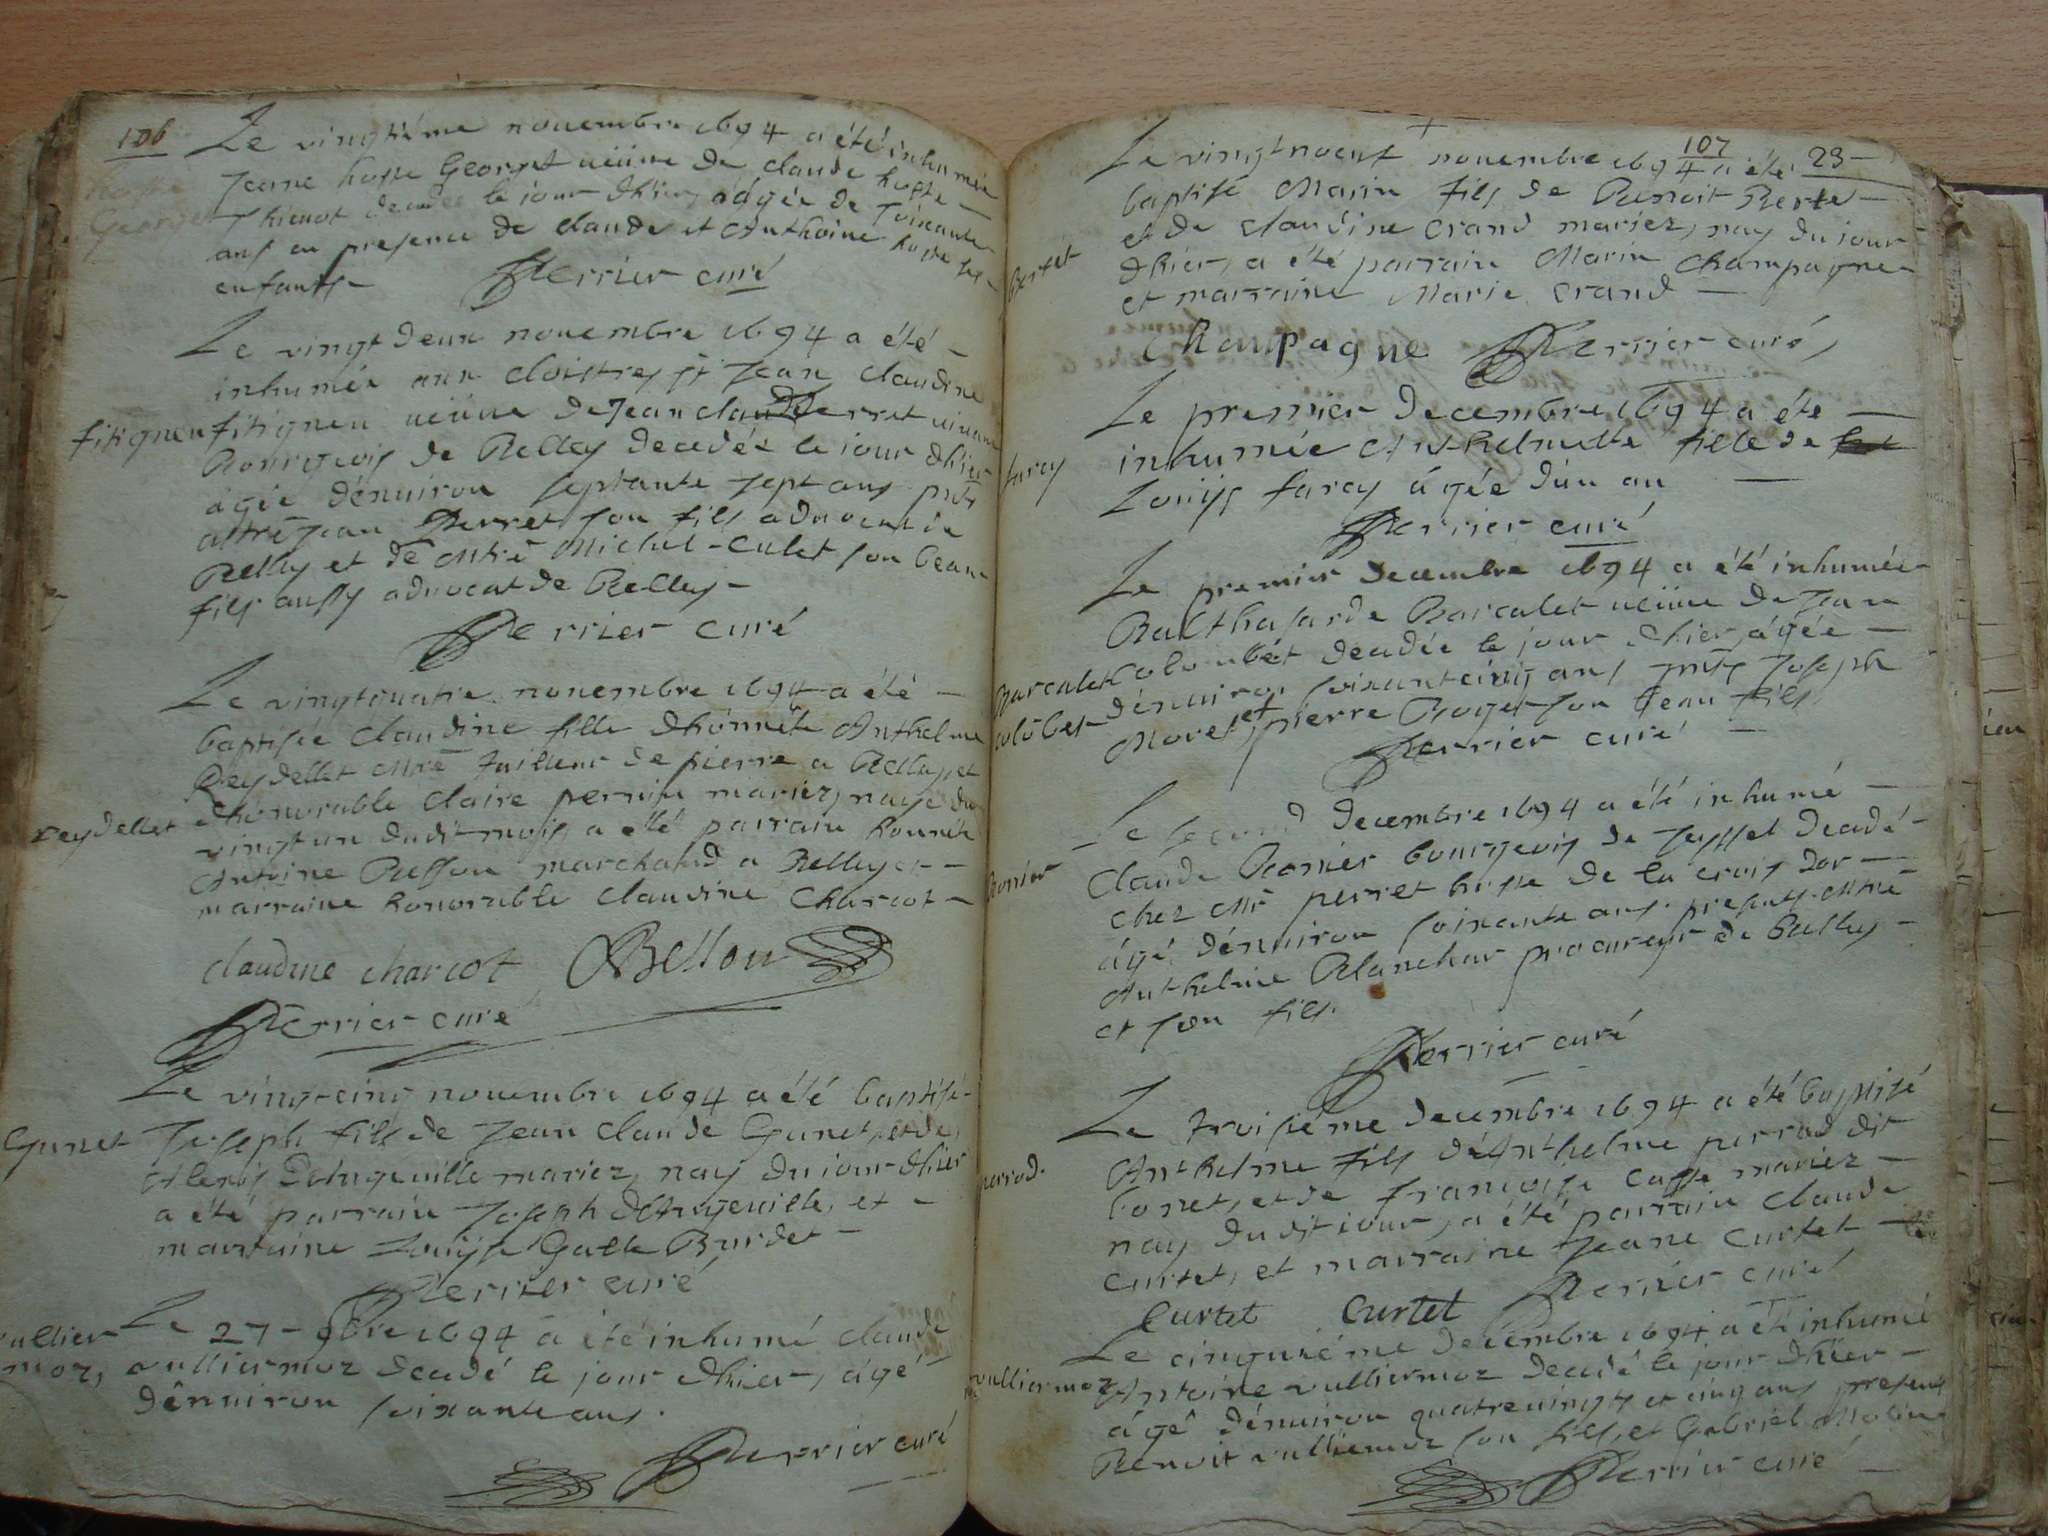 106
Le vingtiéme nouembre 1694 a été inhumée
Jeane hoste Georget ueüue de claude hoste
decedée le jour dhier, agée de soixante
ans en presence de claude et Anthoine hoste ses
enfants
Perrier curé
Le vingt deux nouembre 1694 a été
inhumée aux cloistres st Jean claudine
fitigneu
fitigneu ueüue de Jean claude Perret uiuant
Bourgeois de Belley decedée le jour dhier
agée dénuiron septante sept ans
Jean Perret son fils aduocat de
Belley et de Mre Michel Culet son beau
fils aussy aduocat de Belley
Perrier curé
Le vingtquatre nouembre 1694 a été
baptisée claudine fille dhonnéte Anthelme
Reydellet Mre tailleur de pierre a Belley et
Reydellet
dhonorable claire perrin mariez, naye du
vingt un dudit mois, a été parrain honnéte
Antoine Bellon marchand a Belley et
marraine honorable claudine Charcot
claudine charcot Bellon
Perrier curé
Le vingt-cinq nouembre 1694 a été baptisé
Gunet
Joseph fils de Jean claude Gunet, et de
mariez, nay du jour dhier
a été parrain Joseph et
marraine Louise Galle Burdet
Perrier curé
Le 27 9bre 1694 a été inhumé claude
vullier
moz,
vulliermoz decedé le jour dhier, agé
dénuiron soixante ans.
Perrier curé
107
23
Le vingtnoeuf nouembre 1694 a été
baptisé Marin fils de Benoit Bertet
Bertet
et de claudine Crand mariez, nay du jour
dhier, a été parrain Marin Champagne
et marraine Marie Crand
Champagne Perrier curé
Le premier decembre 1694 a été
inhumée Anthelmette fille de
farcy
Louijs farcy ágée dún an
Perrier curé
Le premier decembre 1694 a été inhumée
Balthasarde Barcalet ueüue de Jean
Barcalet
colōbet
Colombét decedée le jour dhier, ágée
dénuiron soixantcinq ans, Joseph
Moret et pierre Royet son beau fils
Perrier curé
Le second decembre 1694 a été inhumé
Claude Bonier bourgeois de Seyssel decedé
Bonier
chez Mr perret hoste de la croix dor
ágé dénuiron soixante ans. presents Mre
Anthelme Blanchar procureur de Belley
et son fils.
Perrier curé
Le troisiéme decembre 1694 a été baptisé
Anthelme fils dAnthelme perrod dit
perrod.
bonet, et de francoise Casse mariez
nay dudit iour, a été parrain claude
curtet, et marraine Jeane curtet
Curtet Curtet Perrier curé
Le cinquiéme decembre 1694 a été inhumé
vulliermoz
Antoine vulliermoz decedé le jour dhier
ágé dénuiron quatreuingts et cinq ans presents
Benoit vulliermoz son fils, et Gabriel Molin
Perrier curé